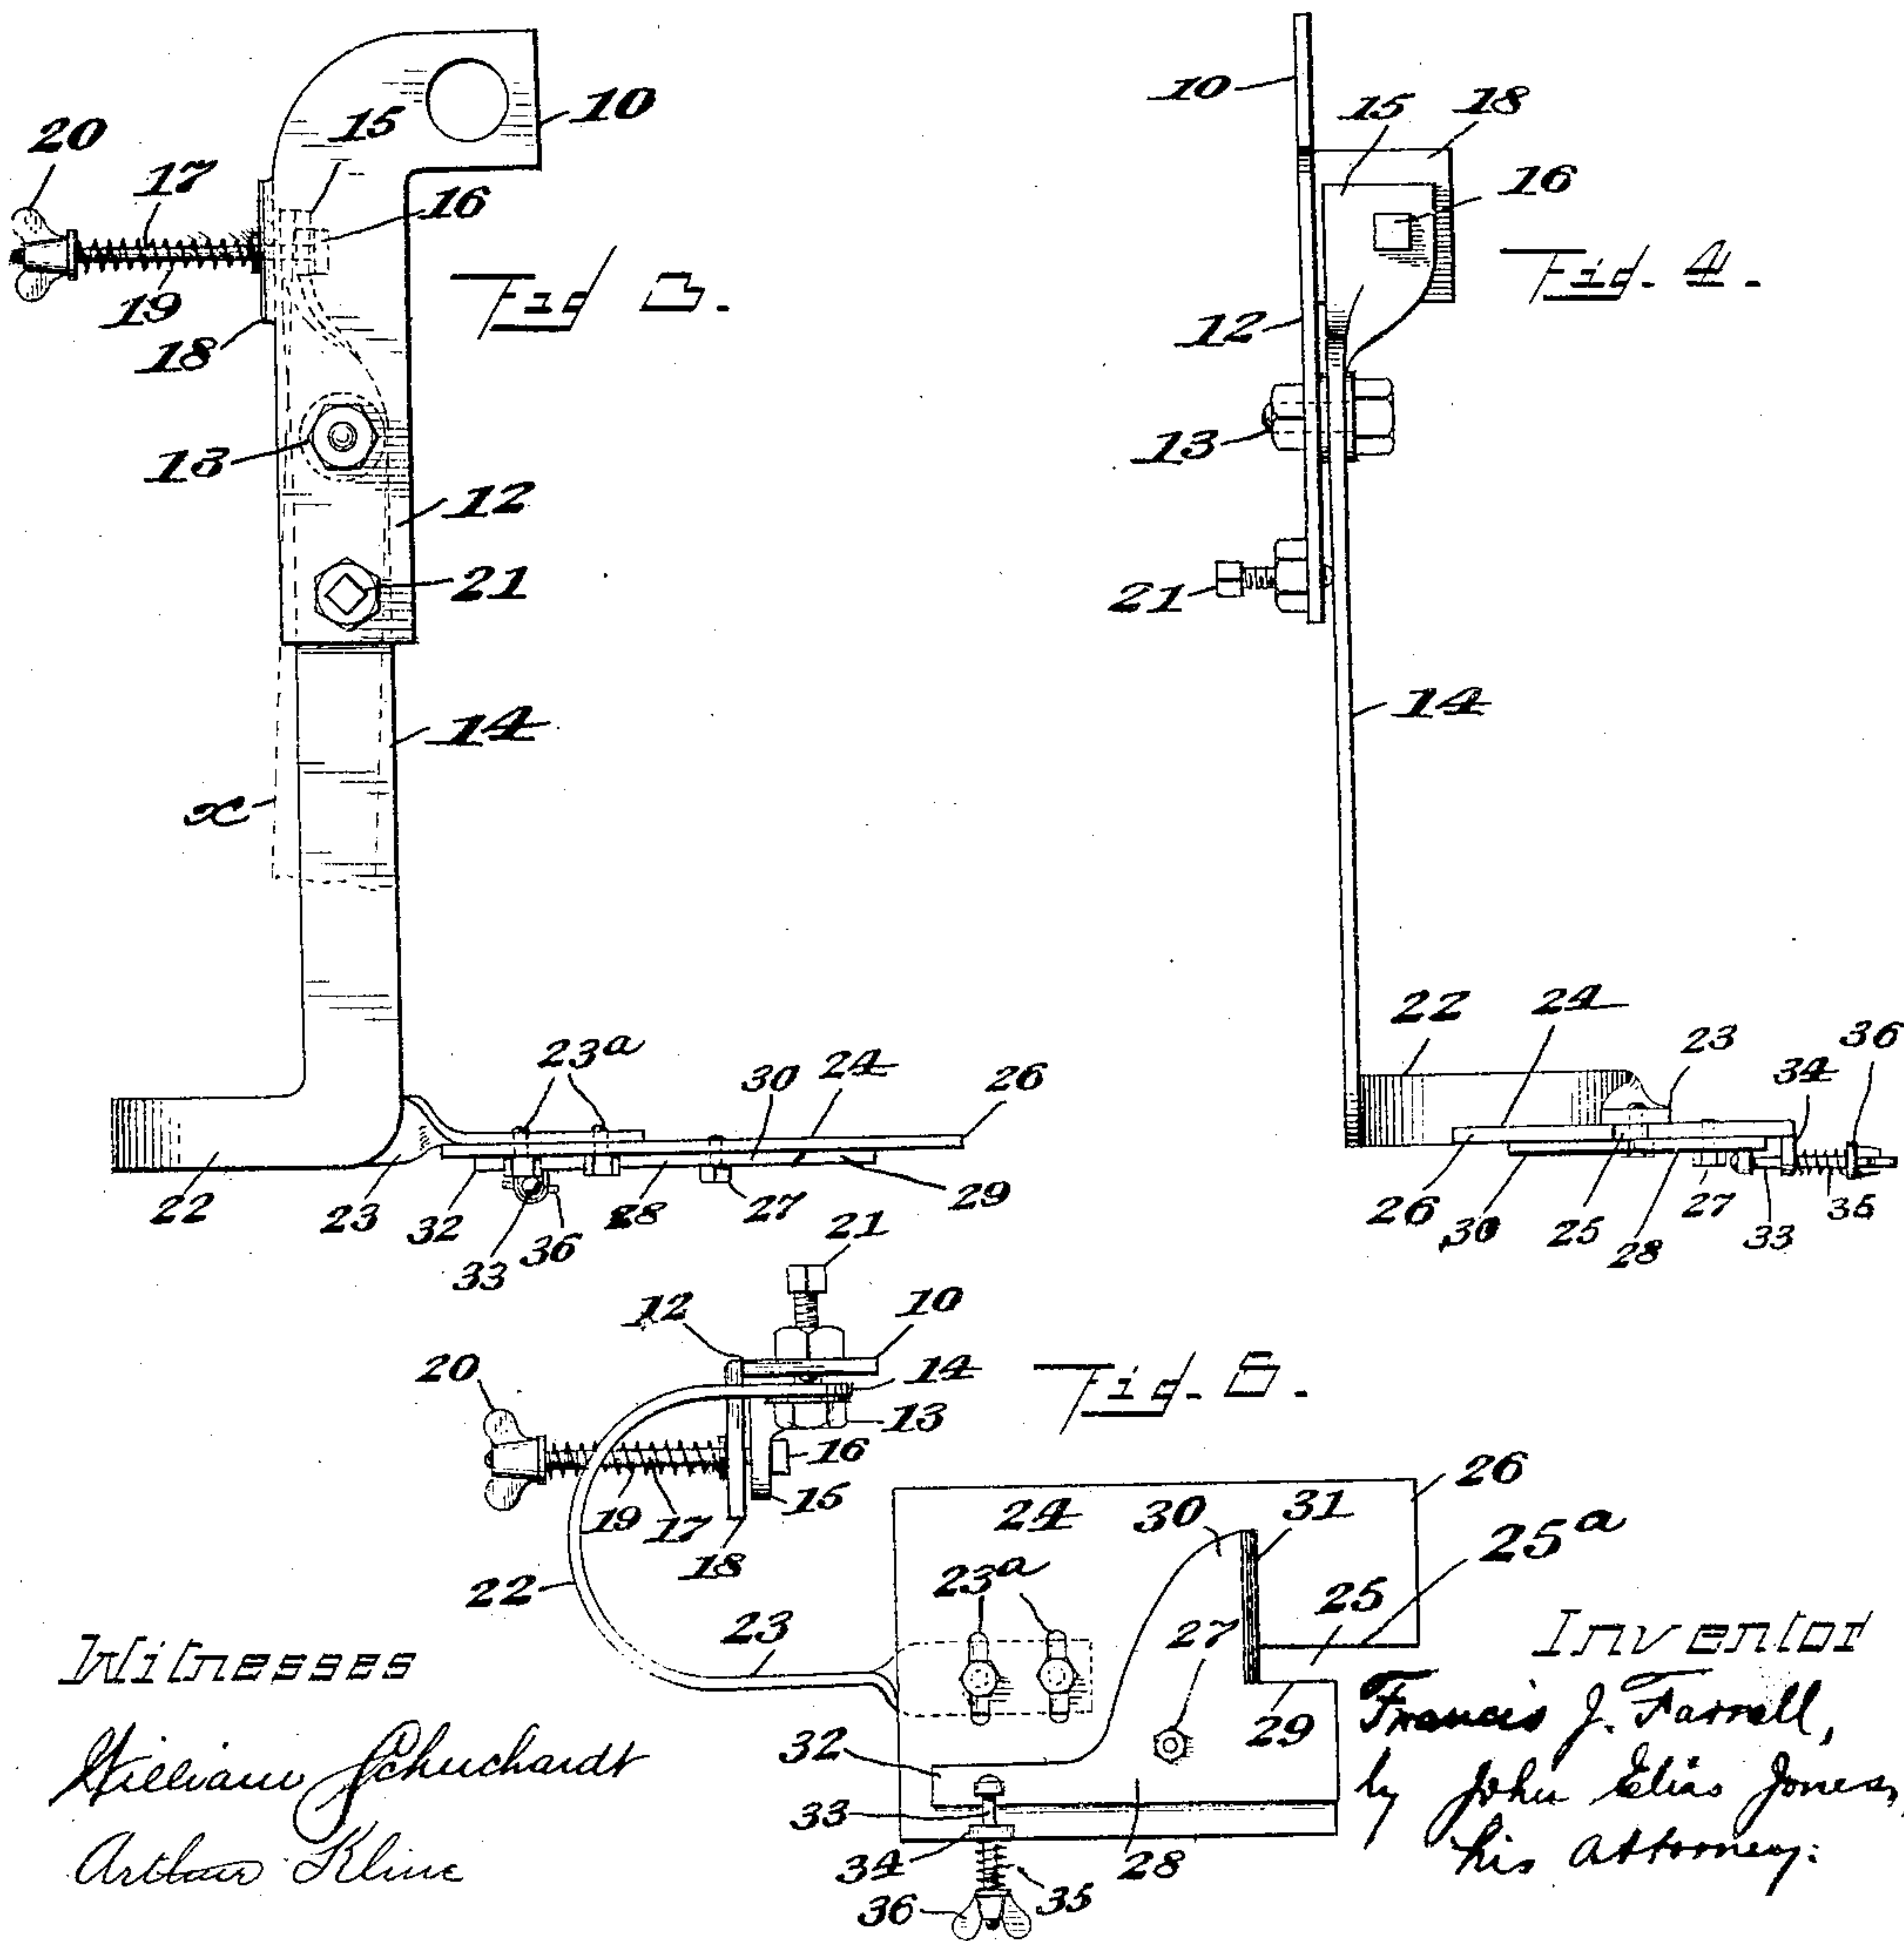 10
15
20
17
16
19
18
Fig 3.
13
12
21
14
x
23a
30
24
26
22
23
32
33
36
28
27
29
10
15
18
16
Fig. 4.
12
13
21
14
22
24
23
34
36
26
30
25
28
27
33
35
21
12
10
20
14
Fig. 5.
13
16
15
19
17
18
22
23
24
30
31
26
25a
23a
25
27
29
32
33
34
28
35
36
Witnesses
William Schuchardt
Arthur Kline
Inventor
Francis J. Farrell,
by John Elias Jones,
his Attorney.